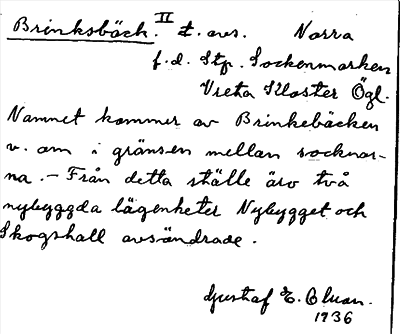 Brinksbäck. II t. avs. Norra
f.d. Stp. Sockenmarken
Vreta Kloster Ögl.
Namnet kommer av Brinkebäcken
v. om i gränsen mellan socknar-
na. - Från detta ställe äro två
nybyggda lägenheter Nybygget och
Skogshall avsöndrade.
Gustaf E. Oluan.
1936